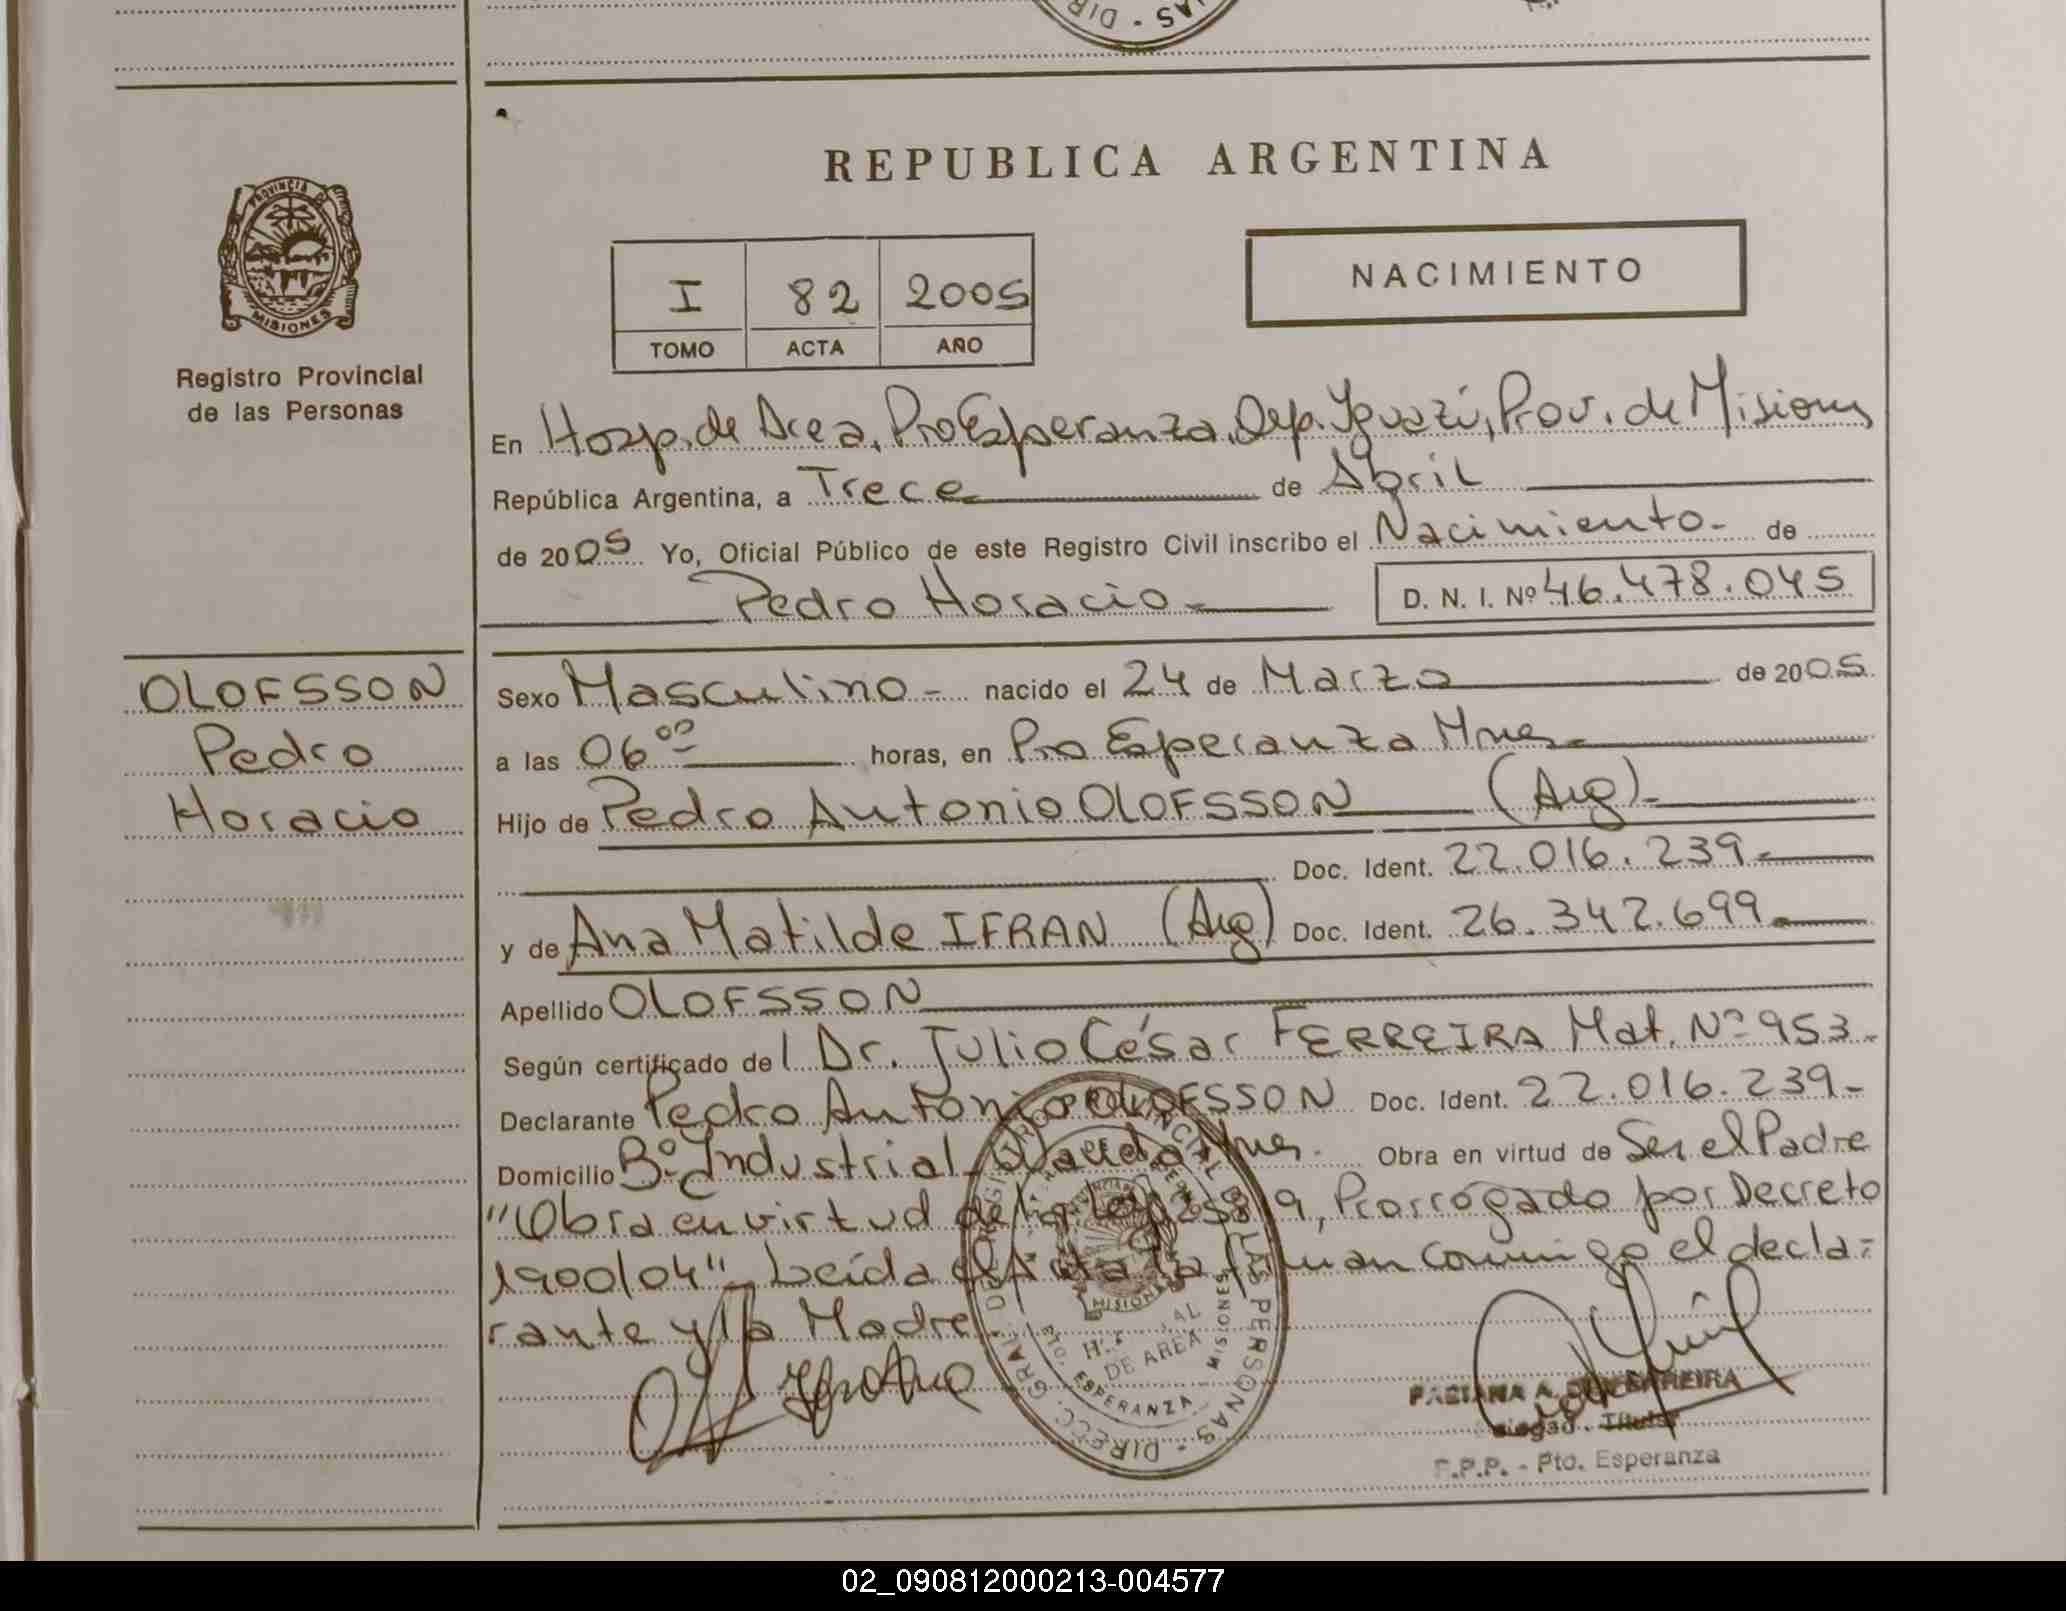 DIR - AS
REPUBLICA ARGENTINA
PROVINCIA DE
MISIONES
Registro Provincial
de las Personas
I 82 2005
TOMO ACTA AÑO
NACIMIENTO
En Hosp. de Area, Pto Esperanza, Dep. Iguazú, Prov. de Misiones
República Argentina, a Trece de Abril
de 2005 Yo, Oficial Público de este Registro Civil inscribo el Nacimiento - de
Pedro Horacio - D. N. I. Nº 46.478.045
OLOFSSON
Pedro
Horacio
Sexo Masculino - nacido el 24 de Marzo de 2005
a las 06 00 horas, en Pto Esperanza Mnes -
Hijo de Pedro Antonio OLOFSSON (Arg) -
Doc. Ident. 22.016.239 -
y de Ana Matilde IFRAN (Arg) Doc. Ident. 26.342.699 -
Apellido OLOFSSON
Según certificado del Dr. Julio César FERREIRA Mat. Nº 953 -
Declarante Pedro Antonio OLOFSSON Doc. Ident. 22.016.239 -
Domicilio Bº Industrial - Wanda Mnes. Obra en virtud de Ser el Padre
"Obra en virtud de la Ley 25819, Prorrogado por Decreto
1900/04" - Leída el Acta la firman conmigo el decla=
rante y la Madre
DIRECC. GRAL. DEL REGISTRO PROVINCIAL DE LAS PERSONAS
MISIONES
DE AREA
PTO. ESPERANZA - MISIONES
FABIANA A.
Titular
Pto. Esperanza
02_090812000213-004577